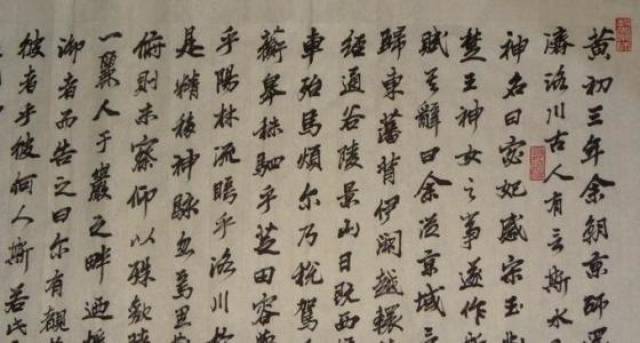 黄初三年余朝京師還
濟洛川古人有言斯水
神名曰宓妃感宋玉對
楚王神女之事遂作斯
賦其辭曰余從京域言
歸東藩背伊闕越轘
經通谷陵景山日既西傾
車殆馬煩尔乃税駕
蘅皋秣駟乎芝田容與
乎陽林流眄乎洛川於
是精移神駭忽焉思
俯則未察仰以殊觀睹
一麗人于巖之畔迺援
御者而告之曰尔有覿
彼者乎彼何人斯若此